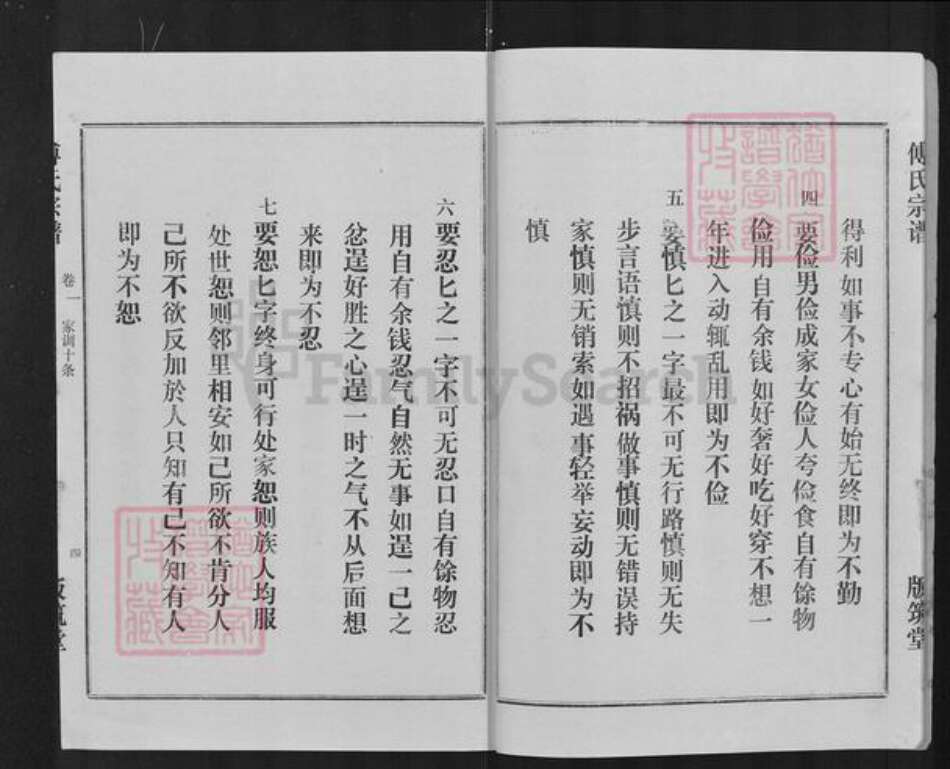 傅氏宗谱
版筑堂
得利如事不专心有始无终即为不勤
四 要俭男俭成家女俭人夸俭食自有馀物
俭用自有余钱如好奢好吃好穿不想一
年进入动辄乱用即为不俭
五 要慎匕之一字最不可无行路慎则无失
步言语慎则不招祸做事慎则无错误持
家慎则无销索如遇事轻举妄动即为不
慎
六 要忍匕之一字不可无忍口自有馀物忍
用自有余钱忍气自然无事如逞一己之
忿逞好胜之心逞一时之气不从后面想
来即为不忍
七 要恕匕字终身可行处家恕则族人均服
处世恕则邻里相安如己所欲不肯分人
己所不欲反加於人只知有己不知有人
即为不恕
卷一 家训十条
四
FamilySearch